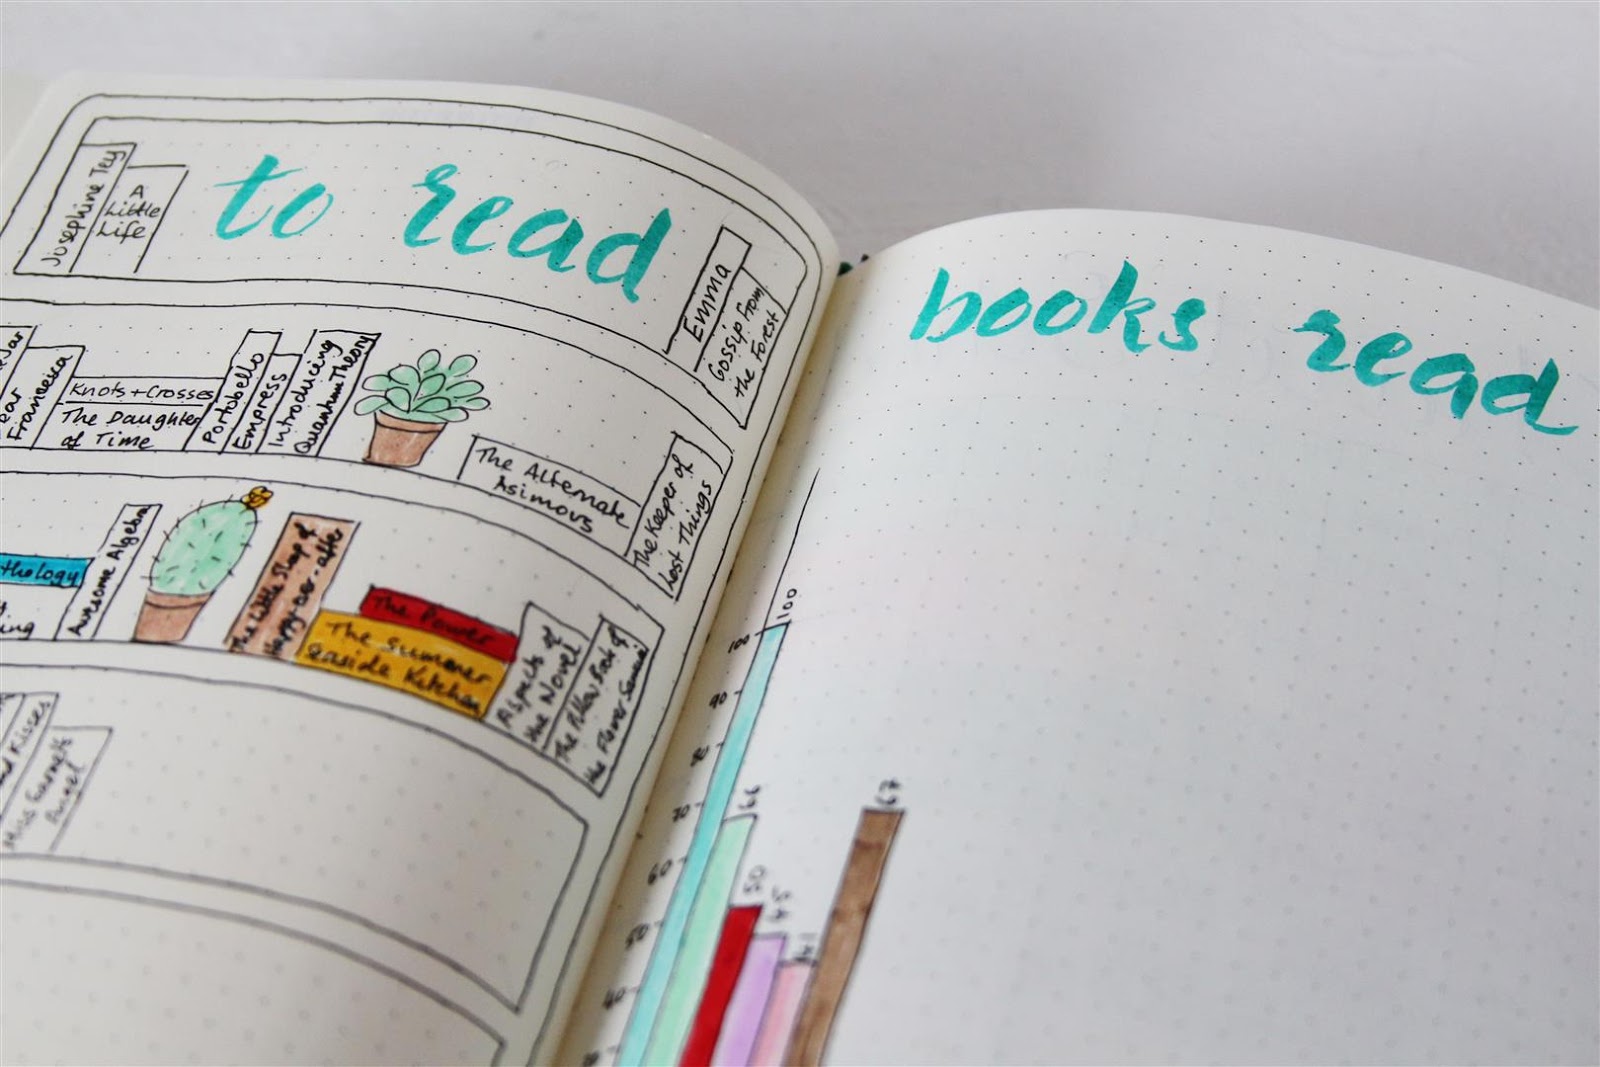 to read
Josephine Tey
A
Little
Life
Emma
Gossip from
the Forest
Francesca
Knots + Crosses
The Daughter
of Time
Portobello
Empress
Introducing
Quantum Theory
The Alternate
Asimovs
The Keeper of
Lost Things
thology
Awesome Algebra
The Little Shop of
Happy-ever-after
The Power
The Summer
Seaside Kitchen
Aspects of
the Novel
The Pillow Book of
the Flower Samurai
Kisses
Miss Garnet's
Angel
books read
100
100
90
80
70
60
50
40
66
50
45
41
67